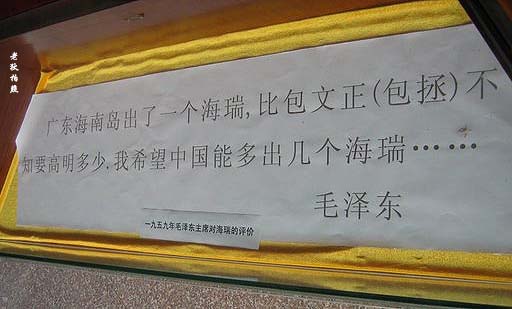 老狄拍照
广东海南岛出了一个海瑞,比包文正(包拯)不
知要高明多少.我希望中国能多出几个海瑞……
毛泽东
一九五九年毛泽东主席对海瑞的评价